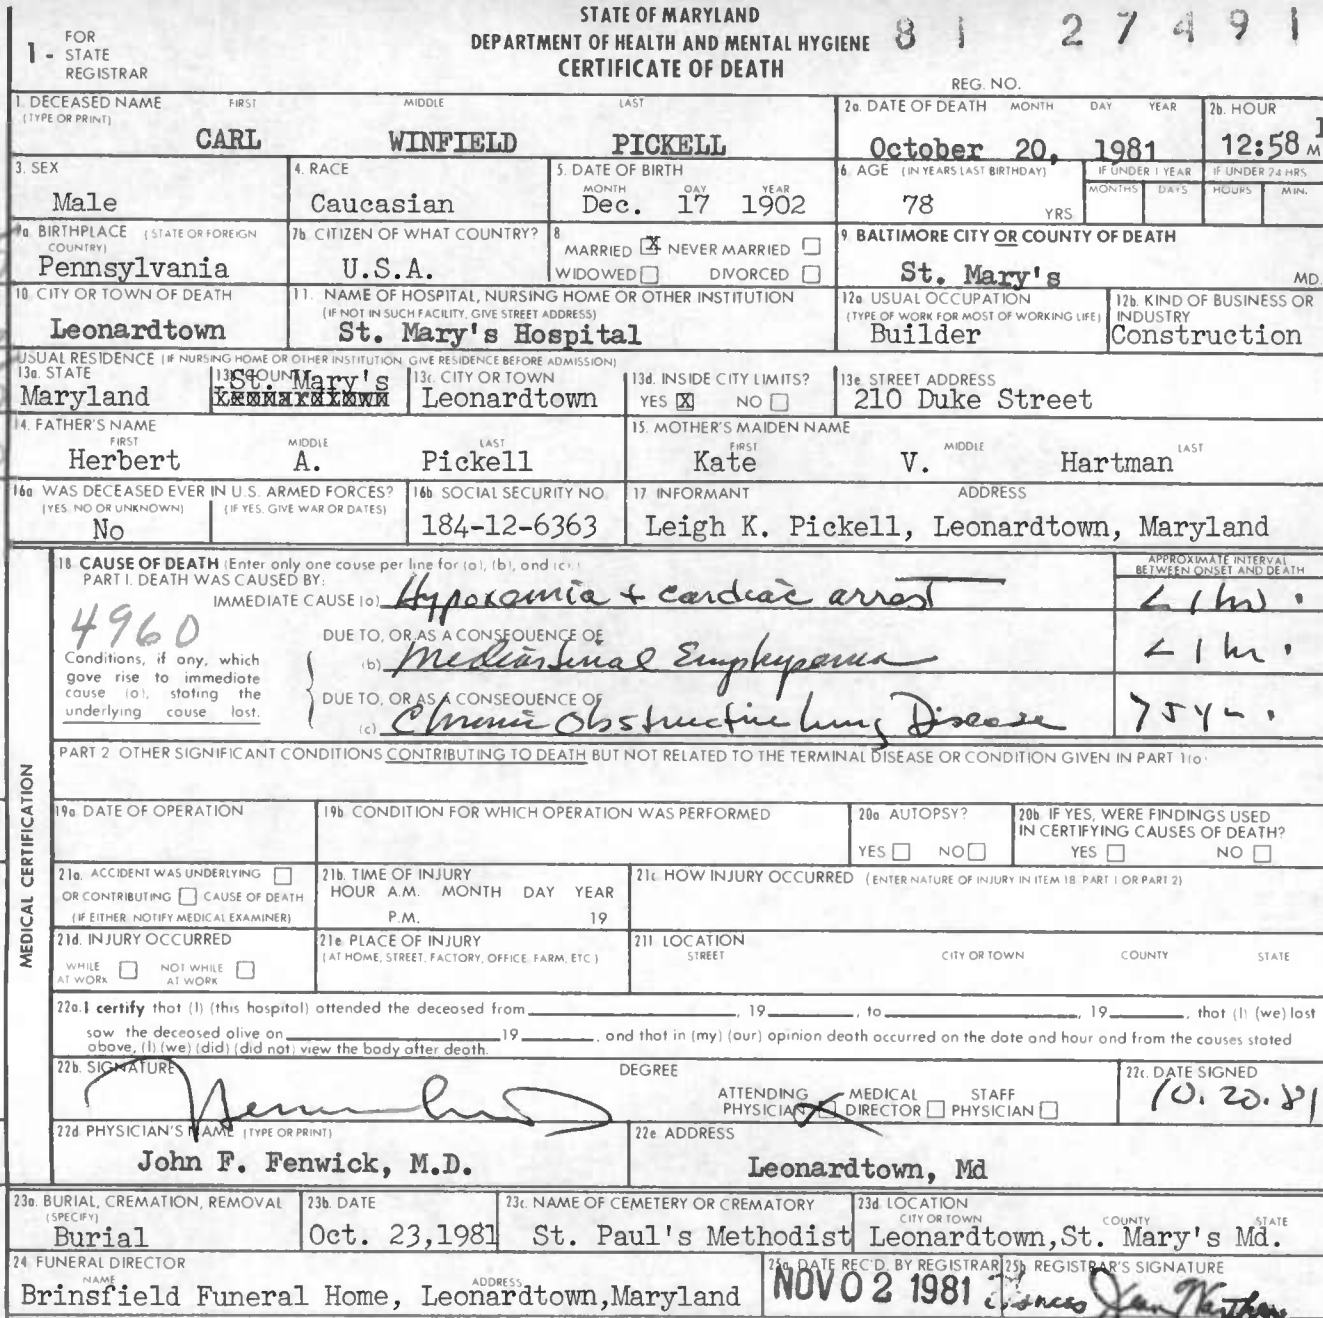 STATE OF MARYLAND
DEPARTMENT OF HEALTH AND MENTAL HYGIENE
CERTIFICATE OF DEATH
81 27491
1 - FOR STATE REGISTRAR
REG. NO.
1. DECEASED NAME (TYPE OR PRINT) FIRST MIDDLE LAST
CARL WINFIELD PICKELL
2a. DATE OF DEATH MONTH DAY YEAR
October 20, 1981
2b. HOUR
12:58 M
3. SEX
Male
4. RACE
Caucasian
5. DATE OF BIRTH MONTH DAY YEAR
Dec. 17 1902
6. AGE (IN YEARS LAST BIRTHDAY)
78 YRS
IF UNDER 1 YEAR MONTHS DAYS
IF UNDER 24 HRS HOURS MIN.
7a. BIRTHPLACE (STATE OR FOREIGN COUNTRY)
Pennsylvania
7b. CITIZEN OF WHAT COUNTRY?
U.S.A.
8 MARRIED X NEVER MARRIED
WIDOWED DIVORCED
9. BALTIMORE CITY OR COUNTY OF DEATH
St. Mary's MD.
10. CITY OR TOWN OF DEATH
Leonardtown
11. NAME OF HOSPITAL, NURSING HOME OR OTHER INSTITUTION
(IF NOT IN SUCH FACILITY, GIVE STREET ADDRESS)
St. Mary's Hospital
12a. USUAL OCCUPATION
(TYPE OF WORK FOR MOST OF WORKING LIFE)
Builder
12b. KIND OF BUSINESS OR INDUSTRY
Construction
USUAL RESIDENCE (IF NURSING HOME OR OTHER INSTITUTION GIVE RESIDENCE BEFORE ADMISSION)
13a. STATE
Maryland
St. Mary's
13c. CITY OR TOWN
Leonardtown
13d. INSIDE CITY LIMITS?
YES X NO
13e. STREET ADDRESS
210 Duke Street
14. FATHER'S NAME FIRST MIDDLE LAST
Herbert A. Pickell
15. MOTHER'S MAIDEN NAME FIRST MIDDLE LAST
Kate V. Hartman
16a WAS DECEASED EVER IN U.S. ARMED FORCES?
(YES, NO OR UNKNOWN) (IF YES, GIVE WAR OR DATES)
No
16b SOCIAL SECURITY NO.
184-12-6363
17. INFORMANT ADDRESS
Leigh K. Pickell, Leonardtown, Maryland
MEDICAL CERTIFICATION
18 CAUSE OF DEATH (Enter only one cause per line for (a), (b), and (c).)
PART I. DEATH WAS CAUSED BY:
APPROXIMATE INTERVAL BETWEEN ONSET AND DEATH
IMMEDIATE CAUSE (a) Hypoxemia + cardiac arrest < 1 hr.
4960
DUE TO, OR AS A CONSEQUENCE OF
(b) Mediastinal Emphysema < 1 hr.
Conditions, if any, which gave rise to immediate cause (a), stating the underlying cause last.
DUE TO, OR AS A CONSEQUENCE OF
(c) Chronic Obstructive lung Disease > 5 yr.
PART 2 OTHER SIGNIFICANT CONDITIONS CONTRIBUTING TO DEATH BUT NOT RELATED TO THE TERMINAL DISEASE OR CONDITION GIVEN IN PART 1(a)
19a. DATE OF OPERATION
19b. CONDITION FOR WHICH OPERATION WAS PERFORMED
20a AUTOPSY?
YES NO
20b IF YES, WERE FINDINGS USED IN CERTIFYING CAUSES OF DEATH?
YES NO
21a. ACCIDENT WAS UNDERLYING
OR CONTRIBUTING CAUSE OF DEATH
(IF EITHER NOTIFY MEDICAL EXAMINER)
21b. TIME OF INJURY
HOUR A.M. MONTH DAY YEAR
P.M. 19
21c HOW INJURY OCCURRED (ENTER NATURE OF INJURY IN ITEM 18 PART 1 OR PART 2)
21d. INJURY OCCURRED
WHILE AT WORK NOT WHILE AT WORK
21e PLACE OF INJURY
(AT HOME, STREET, FACTORY, OFFICE, FARM, ETC)
21f LOCATION
STREET CITY OR TOWN COUNTY STATE
22a. I certify that (I) (this hospital) attended the deceased from , 19 , to , 19 , that (I) (we) last
saw the deceased alive on 19 , and that in (my) (our) opinion death occurred on the date and hour and from the causes stated
above, (I) (we) (did) (did not) view the body after death.
22b. SIGNATURE DEGREE
ATTENDING PHYSICIAN MEDICAL DIRECTOR STAFF PHYSICIAN
22c. DATE SIGNED
10.20.81
22d PHYSICIAN'S NAME (TYPE OR PRINT)
John F. Fenwick, M.D.
22e ADDRESS
Leonardtown, Md
23a. BURIAL, CREMATION, REMOVAL (SPECIFY)
Burial
23b. DATE
Oct. 23,1981
23c. NAME OF CEMETERY OR CREMATORY
St. Paul's Methodist
23d LOCATION CITY OR TOWN COUNTY STATE
Leonardtown,St. Mary's Md.
24 FUNERAL DIRECTOR NAME ADDRESS
Brinsfield Funeral Home, Leonardtown,Maryland
25a DATE REC'D. BY REGISTRAR
NOV 02 1981
25b REGISTRAR'S SIGNATURE
Frances Jean